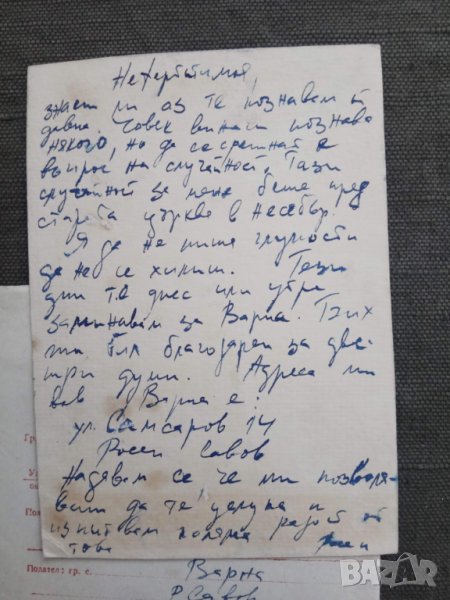 Нефертитимоя,
знаеш ли аз те познавам от
давна. Човек винаги познава
някого, но да се срещнат е
въпрос на случайност. Тази
случайност за мене беше пред
старата църква в Несебър.
Я да не пиша глупости
да не се хилиш. Тези
дни т.е днес или утре
заминавам за Варна. Бих
ти бил благодарен за две-
три думи. Адреса ми
във Варна е:
ул. Самсаров 14
Росен Савов
Надявам се че ми позволя-
ваш да те целуна и
изпитвам голяма радост от
това Росен
Гр
Подател: гр. с. Варна
Р Савов
bazar.bg